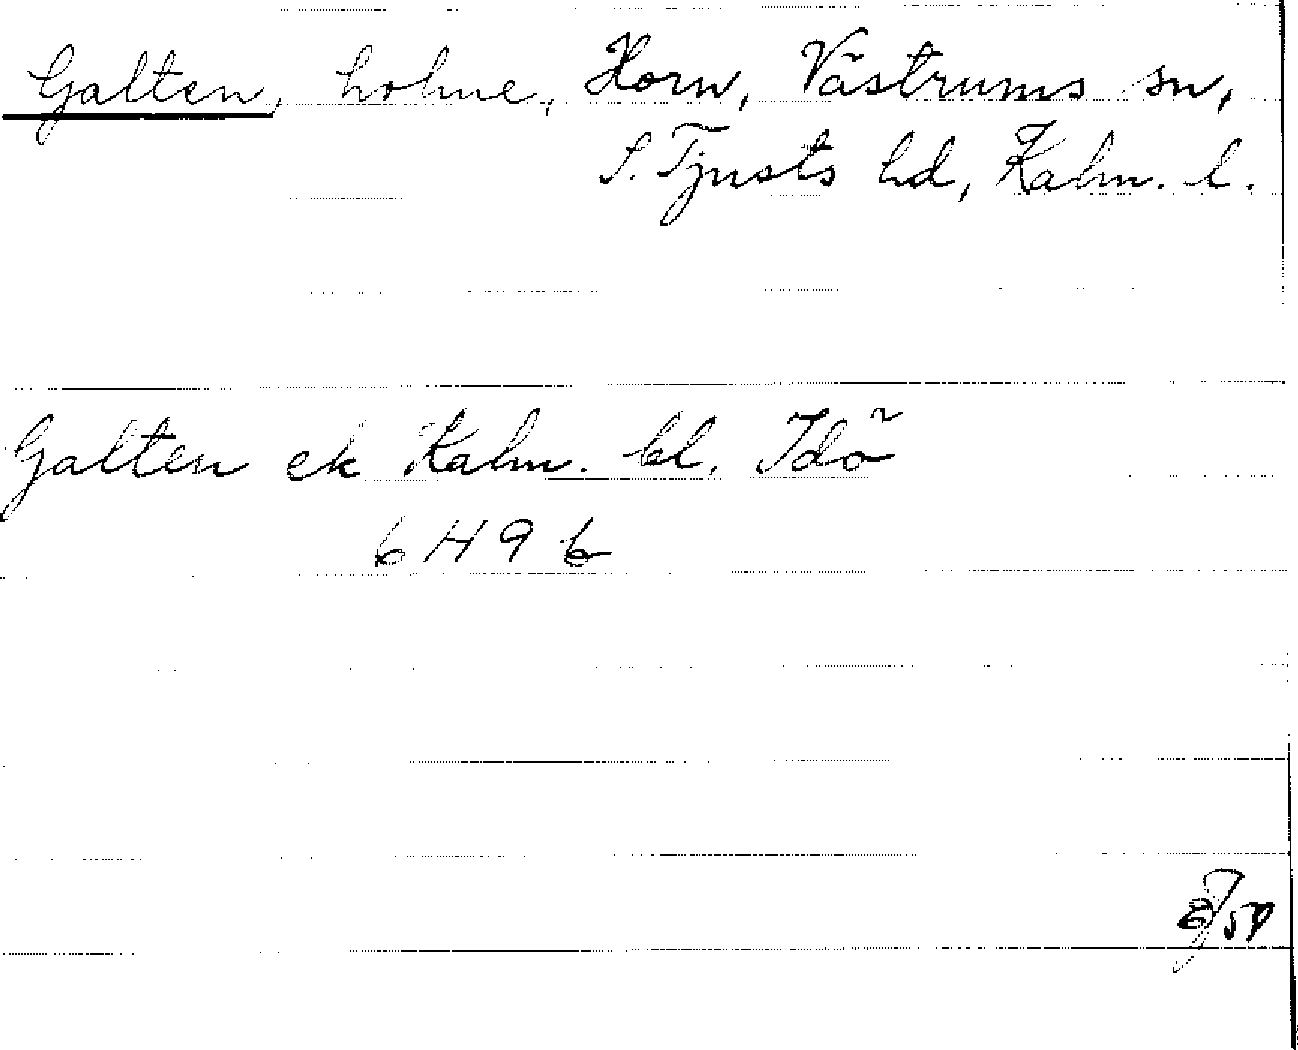 Galten, holme, Horn, Västrums sn,
S. Tjusts hd, Kalm. l.
Galten ek Kalm. bl. Idö
6H9b
54